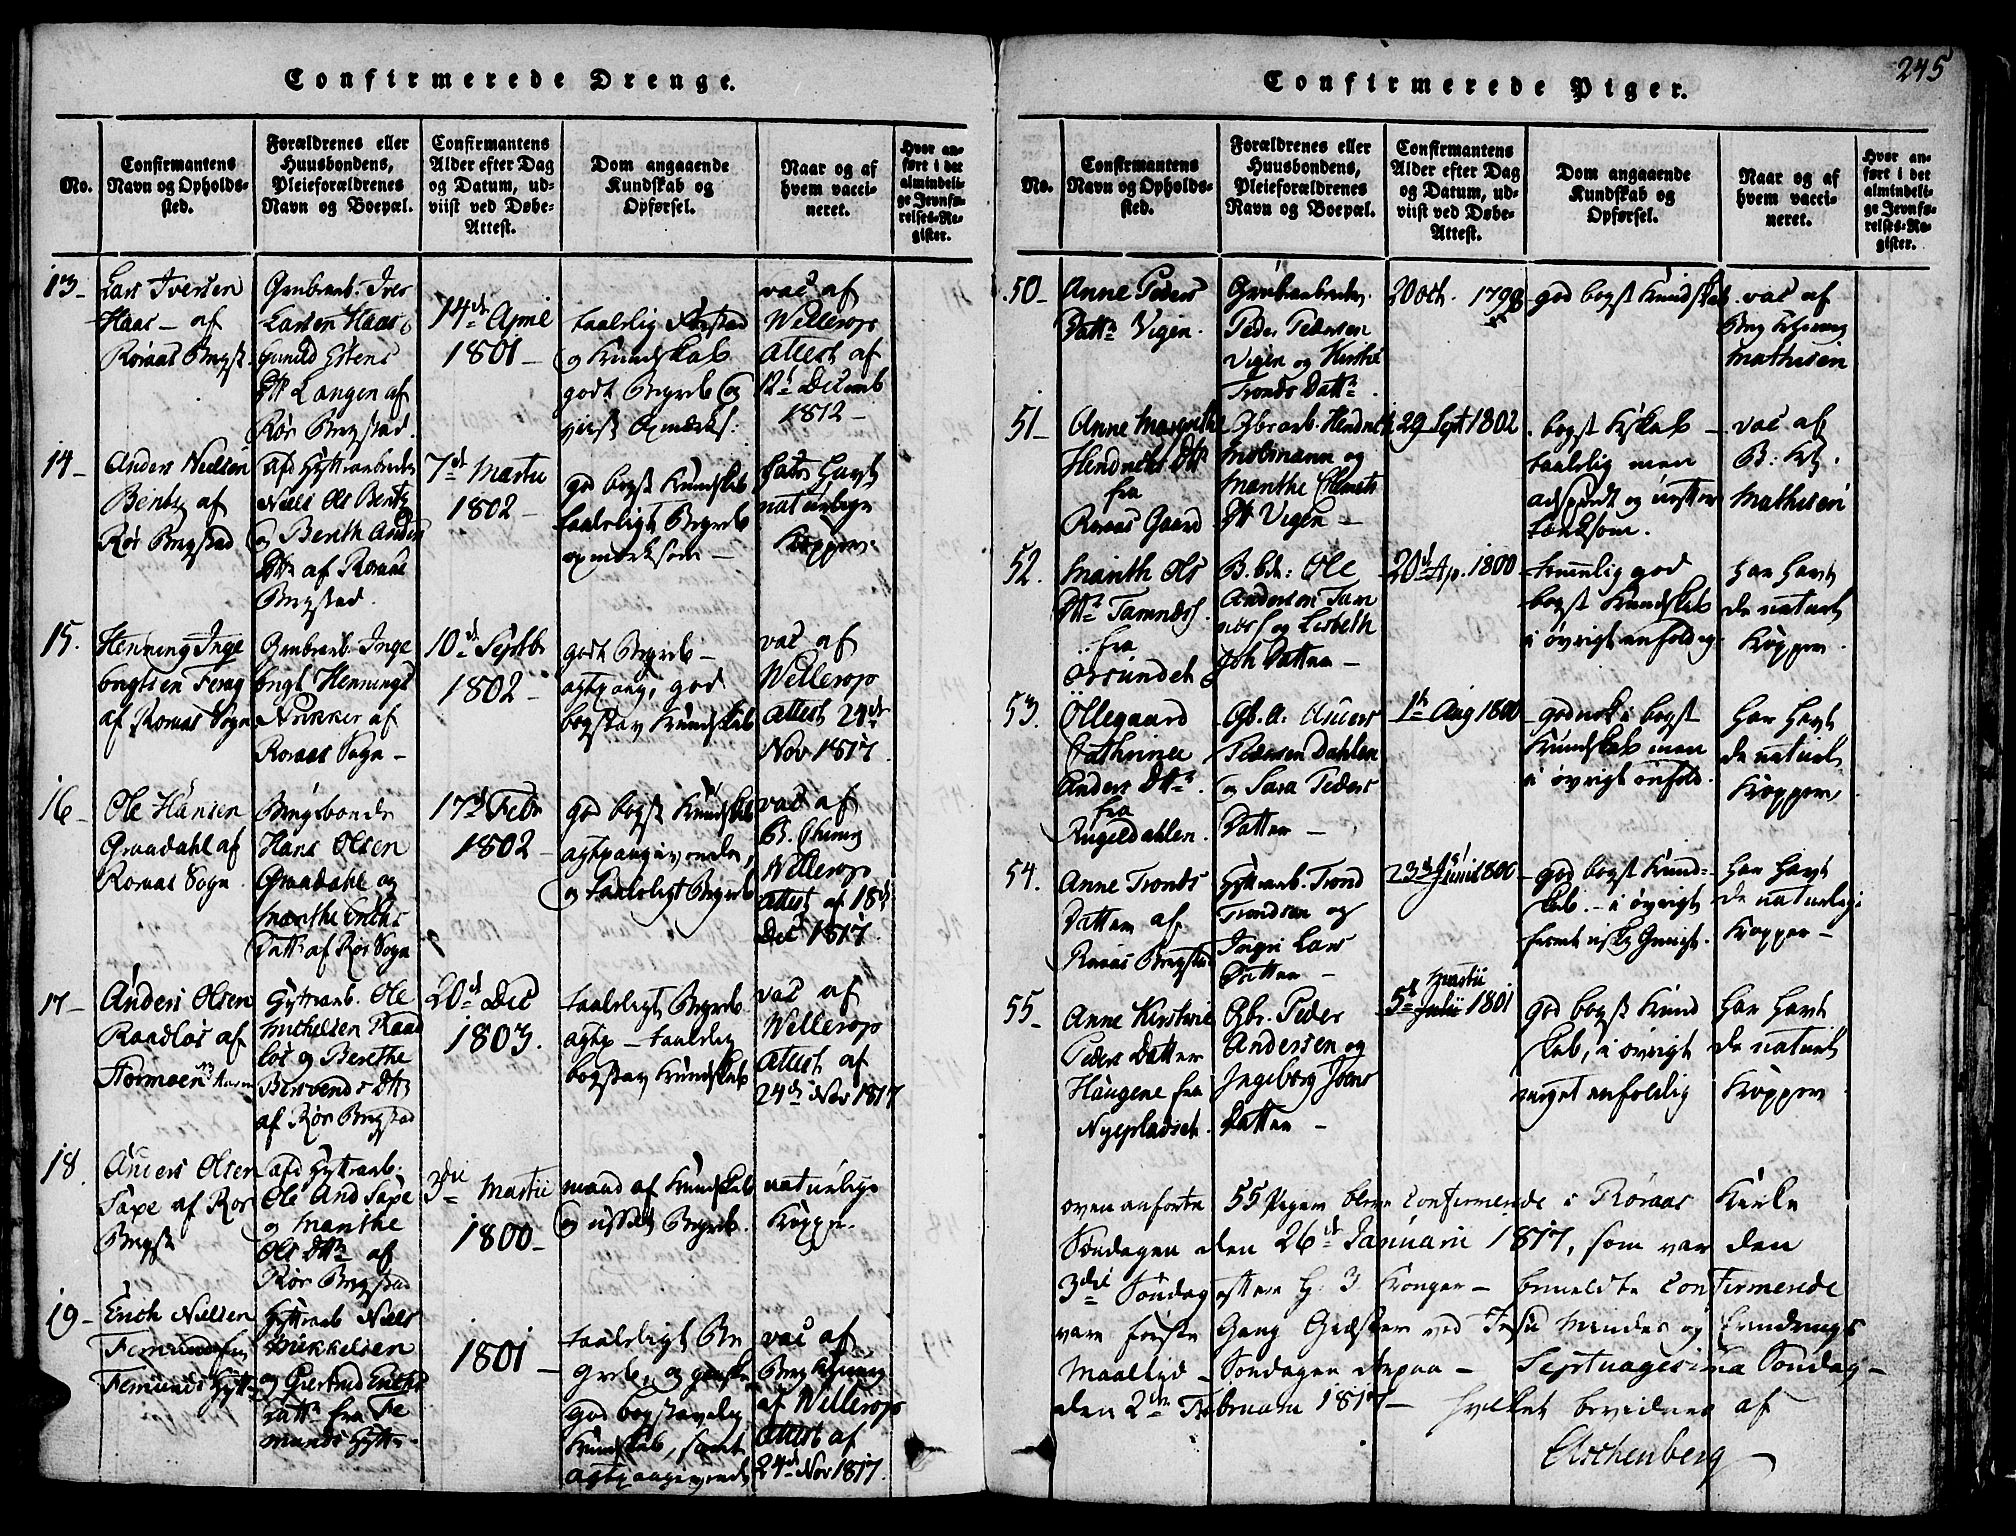 Confirmerede Drenge.
No.
Confirmantens
Navn og Opholds-
sted.
Forældrenes eller
Huusbondens,
Pleieforældrenes
Navn og Boepæl.
Confirmantens
Alder efter Dag
og Datum, ud-
viist ved Døbe-
Attest.
Dom angaaende
Kundskab og
Opførsel.
Naar og af
hvem vacci-
neret.
Hvor an-
ført i det
almindeli-
ge Jevnfø-
relses-Re-
gister.
13-
Lars Iversen
Haas - af
Roraas Bergst.
Grubearb. Iver
Larsen Haas
Gunild
Dtr Langen af
Rør Bergstad.
14de April
1801-
taalelig Forstand
og Kundskab
godt Begreb og
vac af
Wellerop
Attest af
12 Decemb
1812-
14-
Anders Nielsen
Bentz af
Rør Bergstad
Niels Ols Bentz
og Berith Anders
Dtr af Roraas
Bergstad.
7de Martii
1802-
god bogst Kundskab
taaleligt Begreb
opmerksom -
naturlige
Kopper.
15.
Henning Inge
brigtsen Ferag
af Roraas Sogn
Grubearb. Inge
brigt Hennings
af
Roraas Sogn-
10de Septbr
1802-
godt Begreb-
god
bogstav Kundskab
vac af
Wellerop
Attest 24de
Nov 1817
16-
Ole Hansen
Graadahl af
Roraas Sogn
Bergsbonde
Hans Olsen
Graadahl og
Marithe Erichs
Datt af Rør Sogn
17d Febr
1802-
god bogst Kundskab
agtpaagivende,
og taaleligt Begreb
vac af
B. Chirurg
Wellerop
Attest af 18d
Dec 1817
17-
Anders Olsen
Raadlos af
Stormoen
Hyttearb. Ole
Michelsen Raad
los og Berethe
Dtr
af Rør Bergstad
20de Dec
1803.
taaleligt Begreb
agtp - taalelig
bogstav Kundskab
vac af
Wellerop
Attest af
24de Nov 1817
18
Anders Olsen
Saxe af Ror
Bergst
afd Hyttearb.
Ole And Saxe
og Marithe
Ols Dtr af
Rør Bergstad
3die Martii
1800-
maad af Kundskab
og Begreb.
naturlige
Kopper.
19-
Erich Nielsen
Femunds Hytt
Hyttearb Niels
Mikkelsen
og Giertrud Erichs
Datt fra Fe
munds Hytte.
1801-
taaleligt Be
greb, og ganske
god bogstavelig
Kundskab, samt
agtpaagivende
vac af
Berg Chirurg
af Wellerop
Attest af
24de Nov 1817.
245
Confirmerede Piger.
No.
Confirmantens
Navn og Opholds-
sted.
Forældrenes eller
Huusbondens,
Pleieforældrenes
Navn og Boepæl.
Confirmantens
Alder efter Dag
og Datum, ud-
viist ved Døbe-
Attest.
Dom angaaende
Kundskab og
Opførsel.
Naar og af
hvem vacci-
neret.
Hvor an-
ført i det
almindeli-
ge Jevnfø-
relses-Re-
gister.
50-
Anne Peders
Dattr Vigen.
Grubearbeider
Peder Pedersen
Vigen og Kirstie
Tronds Dattr.
20 Oct. 1798
god bogst Kundskab
vac af
Berg Chirurg
Mathisen
51-
Anne Margrethe
Hendrichs Dtr
fra
Roraas Gaard
Gbrarb. Hendrich
Molsmann og
Marithe Clemets
Dtr Vigen -
29 Sept 1802
bogst Kskab -
taalelig men
adspredt og
tænksom.
vac af
B: Ch.
Mathisen
52.
Marith Ols
Dtr Tamnæss
fra
Orsundet
B.bd: Ole
Andersen Tam
næss og Lisbeth
Joh Datter -
20d Ap. 1800
temmelig god
bogst Kundskab
i øvrigt enfoldig
har havt
de naturl
Kopper.
53.
Ollegaard
Cathrine
Anders Dtr.
fra
Rugeldahlen.
Gb. A: Anders
Pedersen Dahlen
og Sara Peders
Datter -
1te Aug 1800
god nok i bogst
Kundskab men
i øvrigt enfold.
har havt
de naturl
Kopper,
54.
Anne Tronds
Datter af
Roraas Bergstad
Hyttearb. Trond
Trondsen og
Ingri Lars
Datter -
23de Junii 1800
god bogst Kund-
skab - i øvrigt
har havt
de naturlige
Kopper -
55-
Anne Kirstine
Peders Datter
Haugene fra
Nyepladset.
Gbr. Peder
Andersen og
Ingeborg Joens
Datter -
Martii
5te Julii 1801
god bogst Kund
skab, i øvrigt
meget enfoldig
har havt
de naturl
Kopper
ovenanførte 55 Piger bleve Confirmerede i Røraas Kirke
Søndagen den 26de Januarii 1817, som var den
3die Søndag efter H. 3 Konger - bemeldte Confirmerede
vare første Gang Giæster ved Jesu Mindes og Erindrings
Maaltid - Søndagen derpaa - Septuagesima Søndag-
den 2den Februarii 1817- hvilket bevidnes af
Aschenberg -